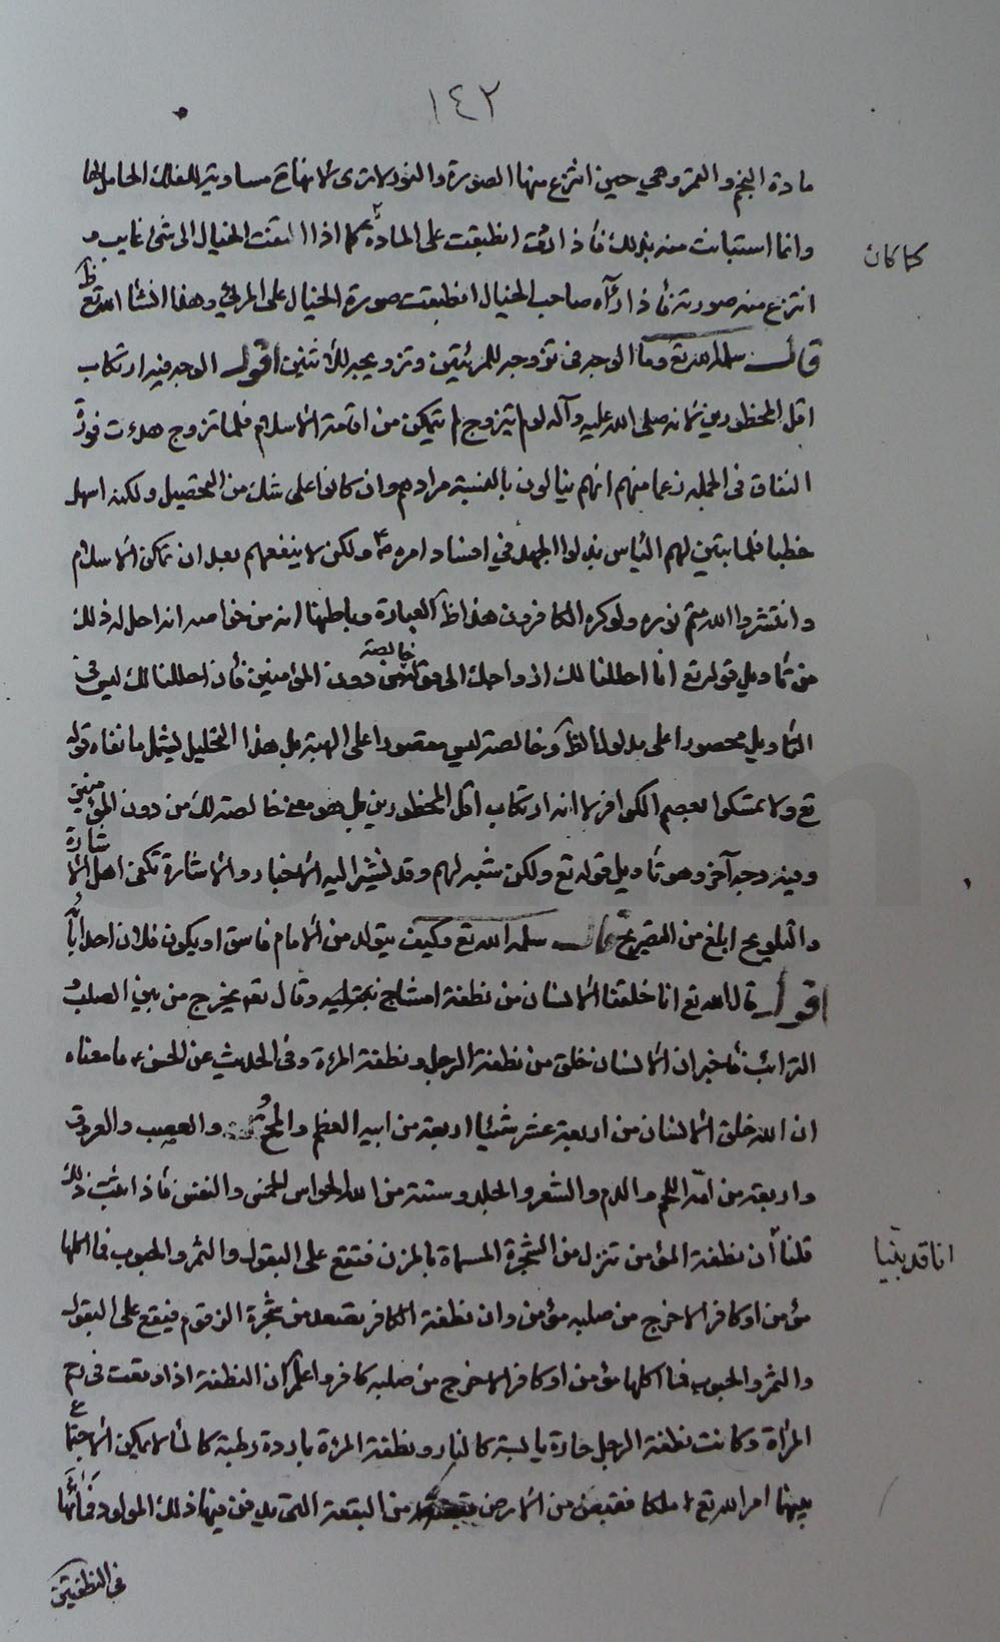 ١٤٢
مادة النجم والقمر وهي حين انتزع منها الصورة والنور لا ترى لانها مساوية للفلك الحامل لها
وانما استبانت منه بذلك فأذا لقت انطبقت على المادة كما اذا التفت الخيال الى شئ غايب و
كما كان
انتزع منه صورته فأذا رآه صاحب الخيال انطبقت صورة الخيال على المرئي وهذا انشا الله تع ظ
قال سلمه الله تع وما الوجه في تزوجه للمرئتين وتزويجه للاثنين اقول الوجه فيه ارتكاب
اقل المحظورين لانه صلى الله عليه وآله لو لم يتزوج لم يتمكن من اقامة الاسلام فلما تزوج هدءت فورة
النفاق في الجملة زعما منهم انهم ينالون بالنسبة مرادهم وان كانوا على شك من التحصيل ولكنه اسهل
خطبا فلما تبين لهم الياس بذلوا الجهد في افساد امره ص ولكن لا ينفعهم بعد ان تمكن الاسلام
وانتشر والله متم نوره ولو كره الكافرون هذا ظ العبارة وباطنها انه من خواصه انه احل له ذلك
من تأويل قوله تع انا احللنا لك ازواجك الى قوله خالصة لك من دون المؤمنين فأن احللنا لك ليس في
التأويل محصورا على مدلول الظ وخالصة ليس مقصورا على الهبة بل هذا التحليل يشمل ما نفاه قوله
تع ولا تمسكوا بعصم الكوافر لا انه ارتكاب اقل المحظورين بل هو معنى خالصة لك من دون المؤمنين
وفيه وجه آخر وهو تأويل قوله تع ولكن شبه لهم وقد تشير اليه الاخبار والاشارة تكفي اهل الاشارة
والتلويح ابلغ من التصريح قال سلمه الله تع وكيف يتولد من الامام فاسق او يكون فلان احد آبائه
اقول قال الله تع انا خلقنا الانسان من نطفة امشاج نبتليه وقال تع يخرج من بين الصلب و
الترائب فأخبر ان الانسان خلق من نطفة الرجل ونطفة المرءة وفي الحديث عن الحسن ع ما معناه
ان الله خلق الانسان من اربعة عشر شيئا اربعة من ابيه العظم والمخ والعصب والعروق
واربعة من امه اللحم والدم والشعر والجلد وستة من الله الحواس الخمس والنفس فأذا ثبت ذلك
قلنا أن نطفة المؤمن تنزل من الشجرة المسماة بالمزن فتقع على البقول والثمر والحبوب فما اكلها
انا قد بينا
مؤمن او كافر الا خرج من صلبه مؤمن وان نطفة الكافر تصعد من شجرة الزقوم فيقع على البقول
والثمر والحبوب فما اكلها مؤمن او كافر الا خرج من صلبه كافر واعلم ان النطفة اذا وقعت في رحم
المرأة وكانت نطفة الرجل حارة يابسة كالنار ونطفة المرءة باردة رطبة كالماء لا يمكن الاجتماع
بينهما امر الله تع ملكا فقبض من الارض من البقعة التي يدفن فيها ذلك المولود فماثها
في النطفتين